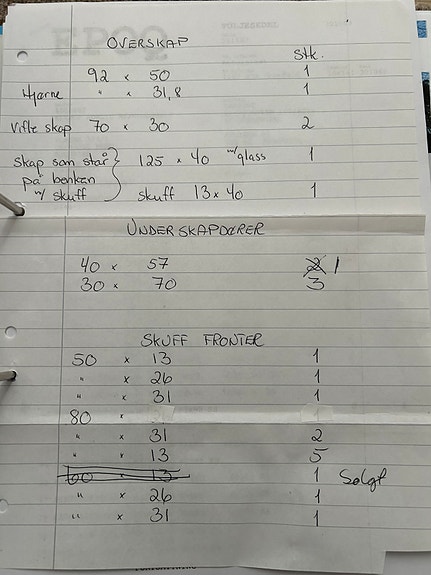 OVERSKAP
Stk.
92 x 50 1
Hjørne " x 31,8 1
Vifte skap 70 x 30 2
Skap som står 125 x 40 m/glass 1
på benken
m/ skuff skuff 13 x 40 1
UNDERSKAPDØRER
40 x 57 2 1
30 x 70 3
SKUFF FRONTER
50 x 13 1
" x 26 1
" x 31 1
80 x
" x 31 2
" x 13 5
60 x 13 1 Solgt
" x 26 1
" x 31 1